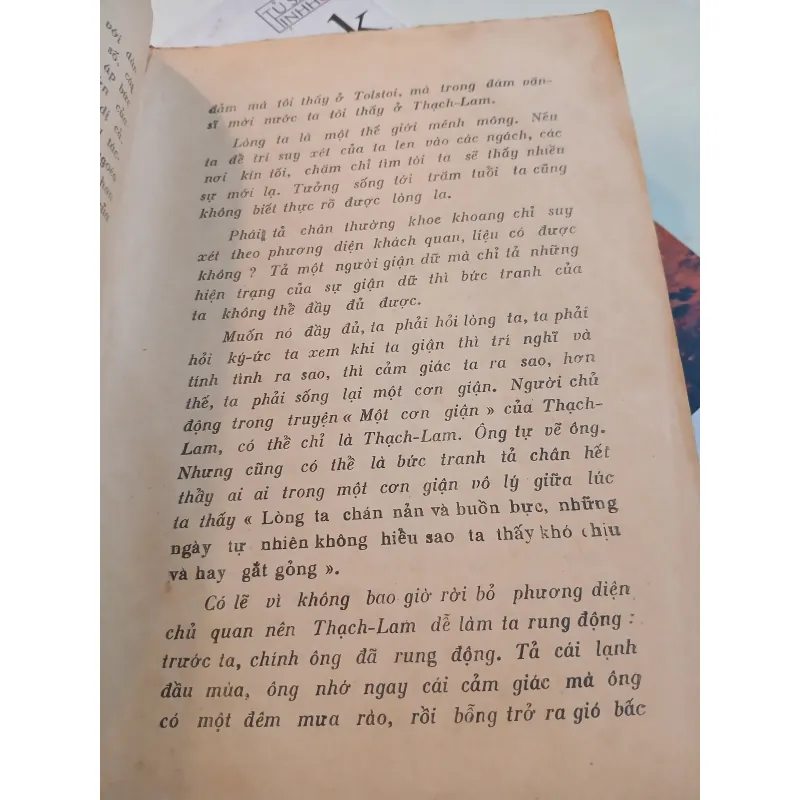 TỦ S
với dân
số, cũ
áp bức
của
đảm mà tôi thấy ở Tolstoi, mà trong đám văn-
sĩ mới nước ta tôi thấy ở Thạch-Lam.
Lòng ta là một thế giới mênh mông. Nếu
ta để trí suy xét của ta len vào các ngách, các
nơi kín tối, chăm chỉ tìm tòi ta sẽ thấy nhiều
sự mới lạ. Tưởng sống tới trăm tuổi ta cũng
không biết thực rõ được lòng ta.
Phái tả chân thường khoe khoang chỉ suy
xét theo phương diện khách quan, liệu có được
không ? Tả một người giận dữ mà chỉ tả những
hiện trạng của sự giận dữ thì bức tranh của
ta không thể đầy đủ được.
Muốn nó đầy đủ, ta phải hỏi lòng ta, ta phải
hỏi ký-ức ta xem khi ta giận thì trí nghĩ và
tính tình ra sao, thì cảm giác ta ra sao, hơn
thế, ta phải sống lại một cơn giận. Người chủ
động trong truyện « Một cơn giận » của Thạch-
Lam, có thể chỉ là Thạch-Lam. Ông tự vẽ ông.
Nhưng cũng có thể là bức tranh tả chân hết
thảy ai ai trong một cơn giận vô lý giữa lúc
ta thấy « Lòng ta chán nản và buồn bực, những
ngày tự nhiên không hiểu sao ta thấy khó chịu
và hay gắt gỏng ».
Có lẽ vì không bao giờ rời bỏ phương diện
chủ quan nên Thạch-Lam dễ làm ta rung động :
trước ta, chính ông đã rung động. Tả cái lạnh
đầu mùa, ông nhớ ngay cái cảm giác mà ông
có một đêm mưa rào, rồi bỗng trở ra gió bấc